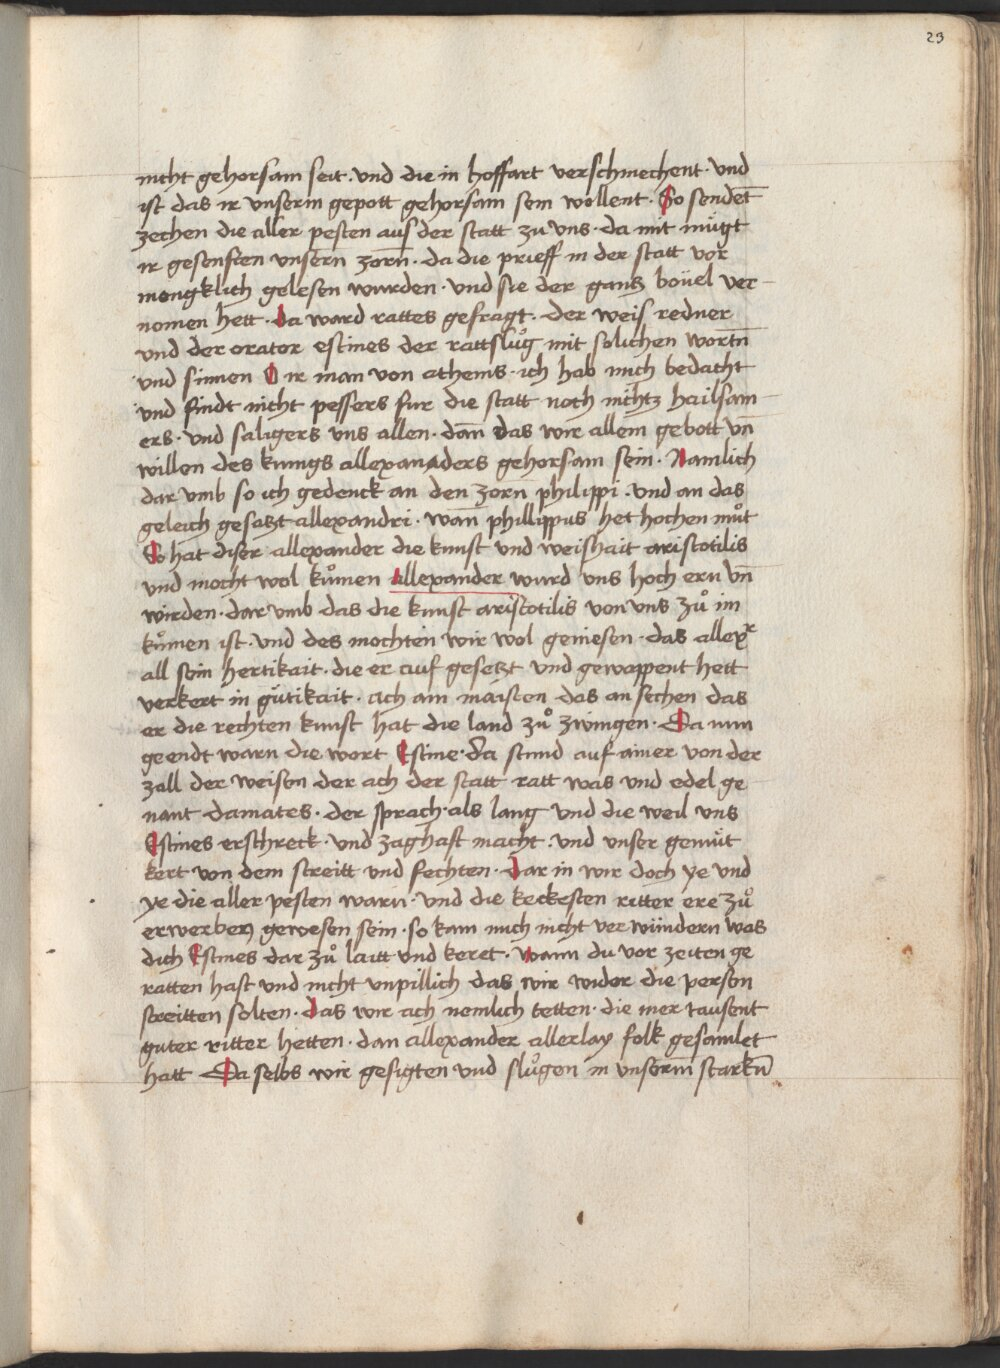 23
nicht gehorsam seit · und die in hoffart verschmechent · und
ist das ir unserm gepott gehorsam sein wollent · So sendet
zechen die aller pesten aus der statt zu uns · da mit mügt
ir gesenften unsern zorn̄ · da die prieff in der statt vor
mengklich gelesen wurden · und sie der gantz böuel ver
nomen hett · da ward rattes gefragt · der weis redner
und der orator estines der rattslůg mit solichen wortn̄
und sinnen O ir man von athenis · ich hab mich bedacht
und findt nicht pessers fur die statt noch nichtz hailsam
ers · und saligers uns allen · dan̄ das wir allem gebott un̄
willen des kunigs allexanaders gehorsam sein · Namlich
dar umb so ich gedenck an den zorn philippi · und an das
geleich gesatzt allexandri · wan̄ phillippus het hochen můt
So hat diser allexander die kunst und weishait aristotilis
und mocht wol kůmen allexander wurd uns hoch ern un̄
wirden · dar umb das die kunst aristotilis von uns zů im
kůmen ist · und des mochten wir wol geniesen · das allexr
all sein hertikait · die er auf gesetzt und gewappent hett
verkert in gütikait · Ach am maisten das an sechen das
er die rechten kunst hat die land zů zwingen · Da nun
geendt warn die wort Estine · da stund auf ainer von der
zall der weisen der ach der statt ratt was und edel ge
nant damates · der sprach · als lang und die weil uns
Estines erschreck · und zaghaft macht · und unser gemüt
kert von dem streitt und fechten · Dar in wir doch ye und
ye die aller pesten warn · und die keckesten ritter ere zů
erwerben gewesen sein · so kam mich nicht verwündern was
dich Estines dar zů laitt und keret · wann du vor zeiten ge
ratten hast und nicht unpillich das wir wider die person
streitten solten · das wir ach nemlich tetten · die mer tausent
guter ritter hetten · dan allexander allerlay folk gesamlet
hatt Da selbs wir gesigten und slůgen in unserm̄ starkn̄